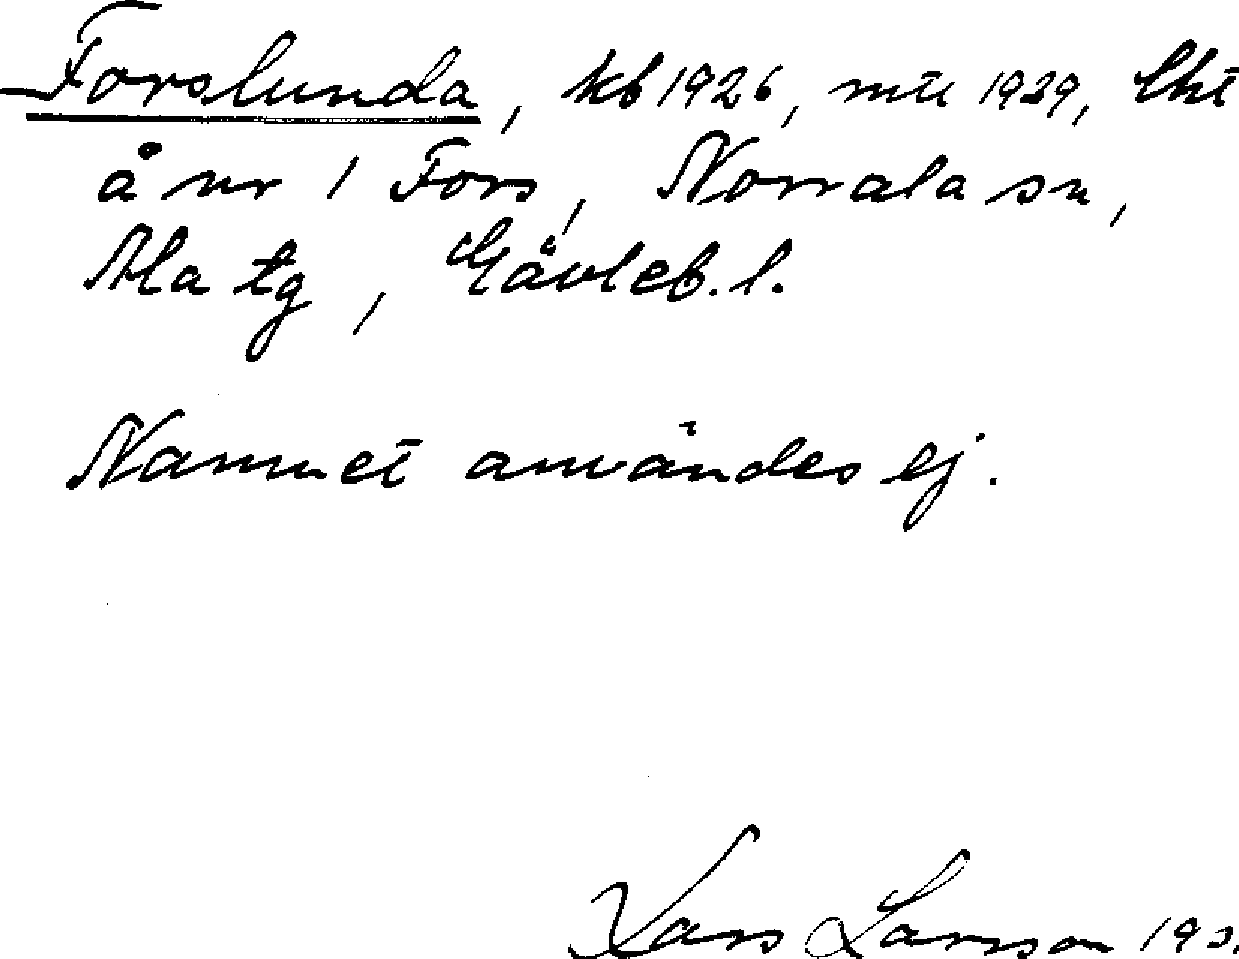 Forslunda, kb 1926, mtl 1939, lht
å nr 1 Fors, Norrala sn,
Ala tg, Gävleb. l.
Namnet användes ej.
Lars Larsson 193